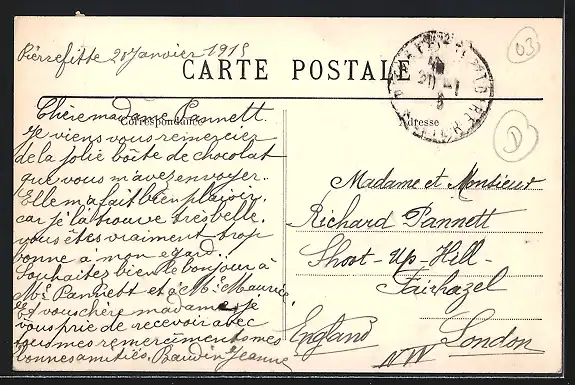 Pierrefitte 20 Janvier 1915
CARTE POSTALE
Correspondance
Adresse
Chère madame Pannett.
Je viens vous remerciez
de la jolie boîte de chocolat
que vous m'avez envoyer.
Elle m'a fait bien plaisir.
car je la trouve très belle.
vous êtes vraiment trop
bonne a mon egard.
Souhaitez bien le bonjour à
Mr. Pannett et à Mr. Maurice
Et vous chère madame je
vous prie de recevoir avec
tous mes remerciments mes
bonnes amitiés. Baudin Jeanne
Madame et Monsieur
Richard Pannett
Shoot-Up-Hill-
Fairhazel
London
England
NW
03
D